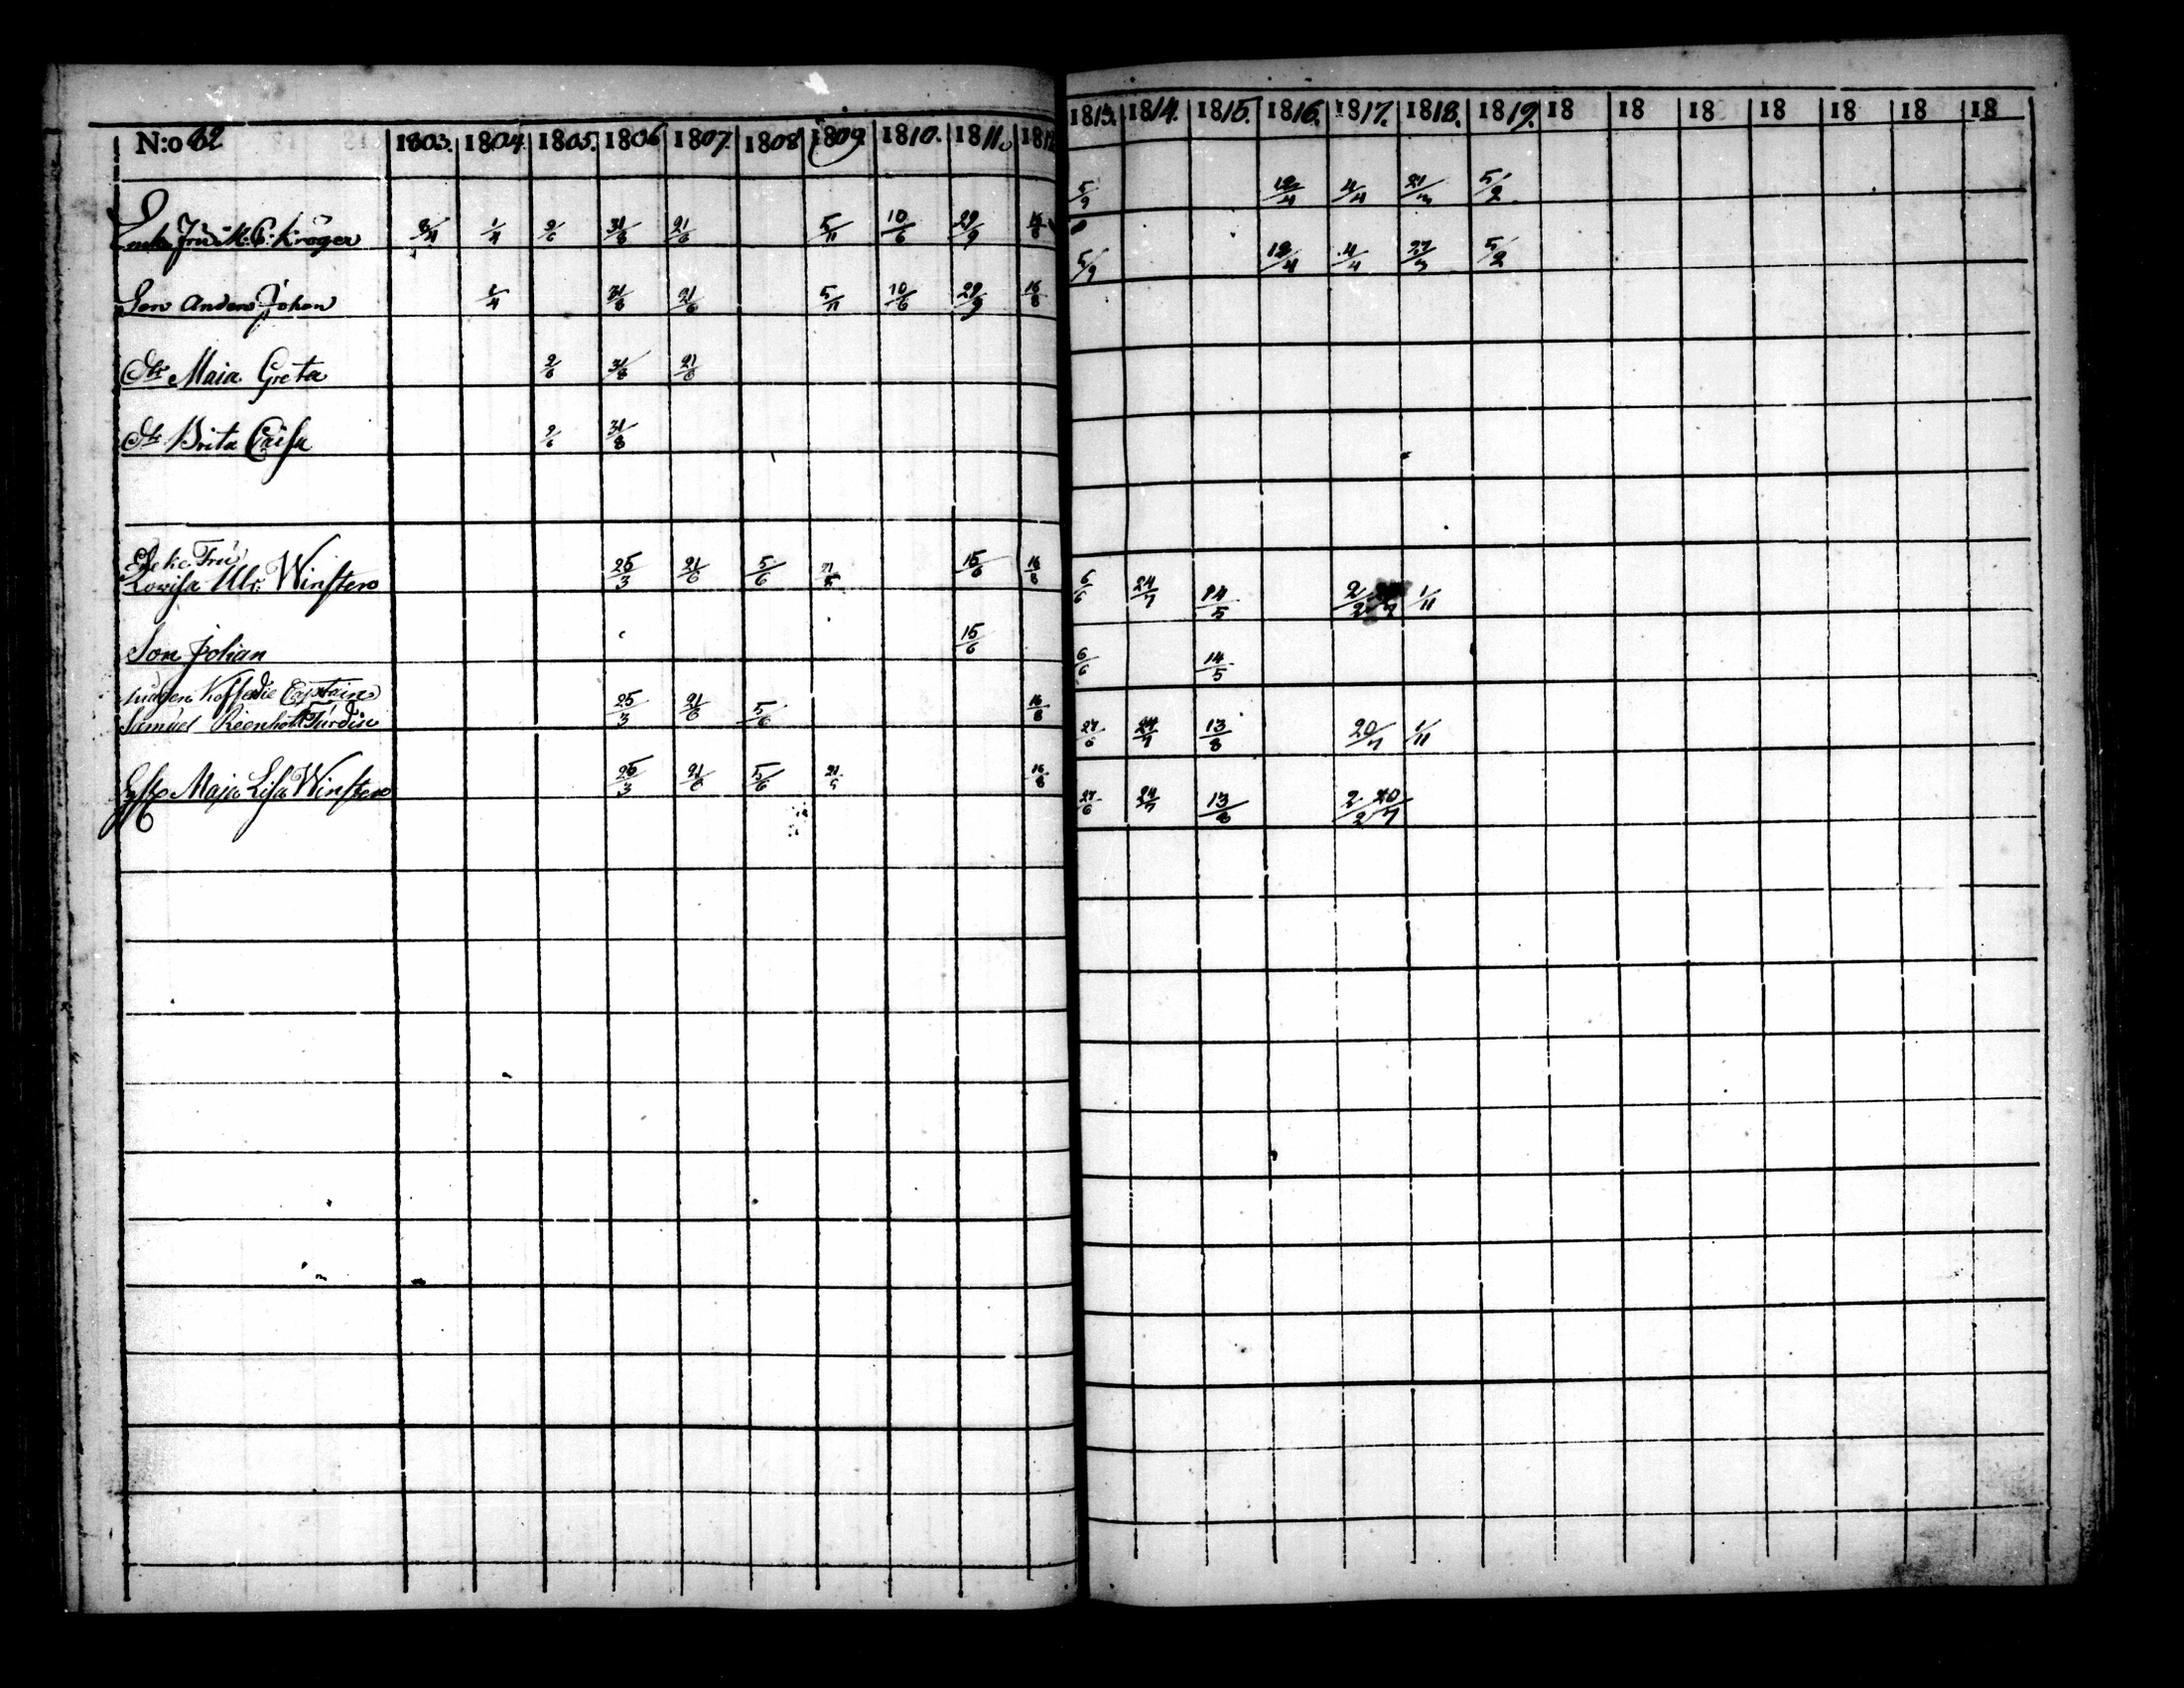 N:o 62 1803. 1804. 1805. 1806 1807. 1808 1809 1810. 1811. 181 1813. 1814. 1815. 1816. 1817. 1818. 1819. 18 18 18 18 18 18 18
Enke Fru M: C: Kröger 1/4 31/8 21/6 5/11 10/6 29/9 16/8 5/9 4/4 21/3 5/2
Son Anders Johan 1/4 31/8 21/6 5/11 10/6 29/9 16/8 5/9 4/4 5/2
Dtr Maia Greta 2/6 31/8 21/6
Dtr Brita Caisa 2/6 31/8
Enke Fru
Lovisa Ulr: Winsten 25/3 21/6 5/6 15/6 16/8 6/6 24/7 14/5 2/2 1/11
Son Johan 15/6 6/6 14/5
Kofferdie Captain
Samuel Reenholt Turdin 25/3 21/6 5/6 16/8 27/6 24/7 13/8 20/7 1/11
Maja Lisa Winsten 25/3 21/6 5/6 16/8 27/6 24/7 13/8 2/2 20/7